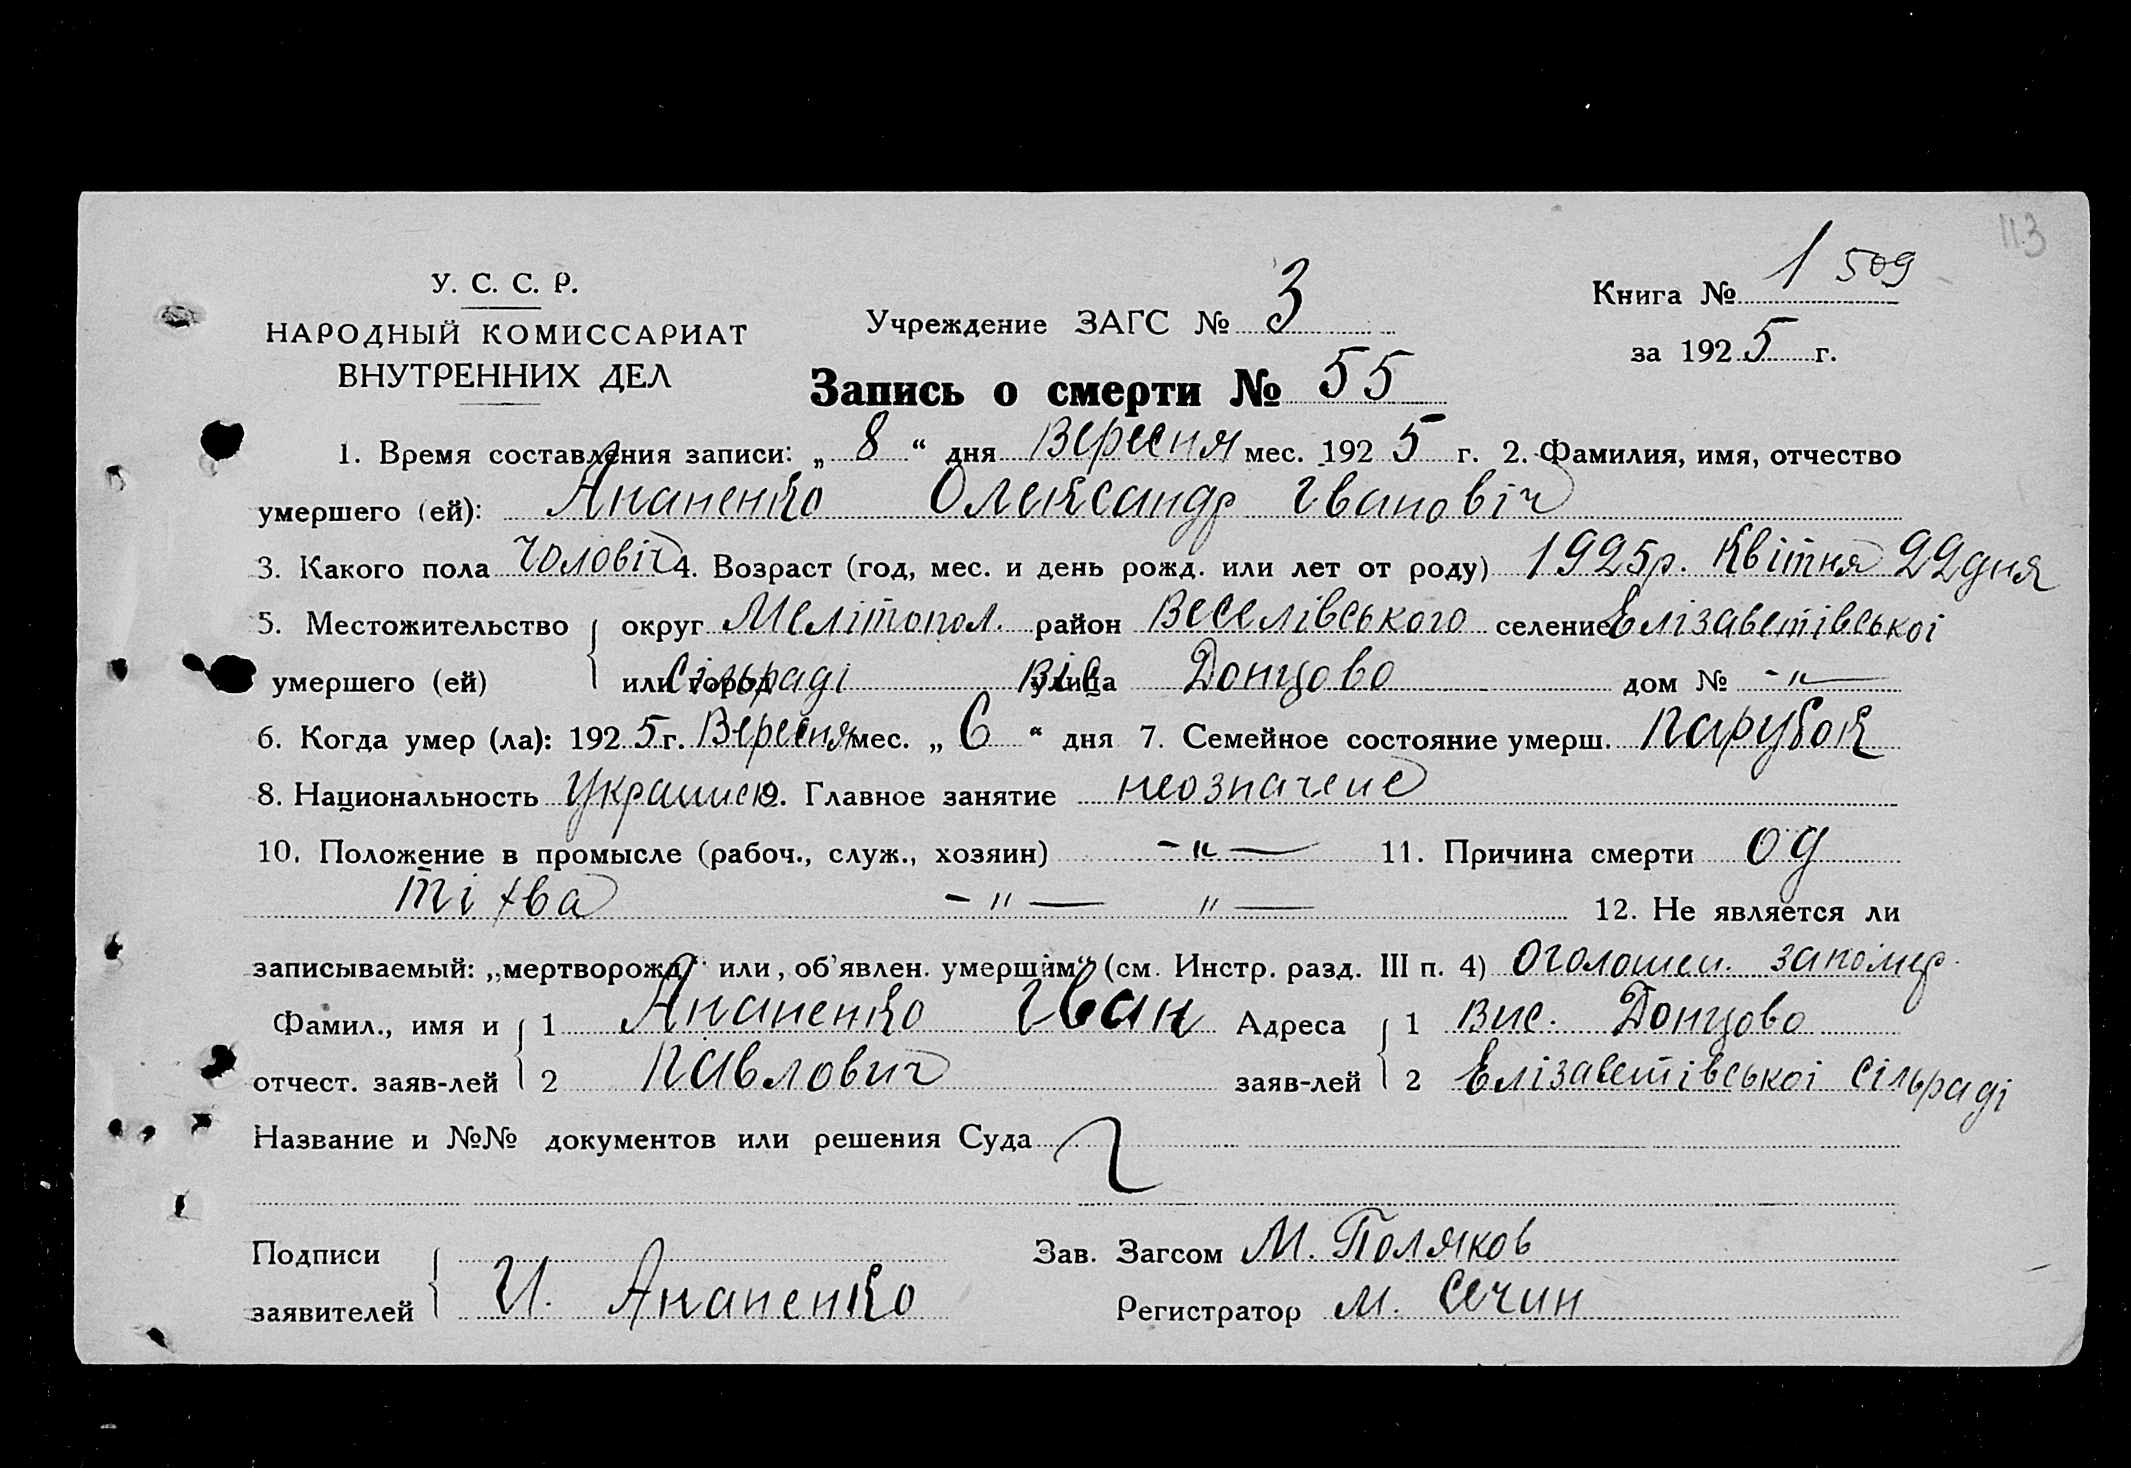 113
У. С. С. Р.
НАРОДНЫЙ КОМИССАРИАТ
ВНУТРЕННИХ ДЕЛ
Учреждение ЗАГС № 3
Книга № 1 509
за 1925 г.
Запись о смерти № 55
1. Время составления записи: „ 8 “ дня Вересня мес. 1925 г. 2. Фамилия, имя, отчество
умершего (ей): Ананенко Олександр Івановіч
3. Какого пола Чоловіч 4. Возраст (год, мес. и день рожд. или лет от роду) 1925р. Квітня 22 дня
5. Местожительство округ Мелітопол. район Веселівського селение Елізаветівської
умершего (ей) или город сільраді улица Вис Донцово дом № -„-
6. Когда умер (ла): 1925 г. Вересня мес. „ 6 “ дня 7. Семейное состояние умерш. Парубок
8. Национальность Украинец 9. Главное занятие неозначене
10. Положение в промысле (рабоч., служ., хозяин) -„- 11. Причина смерти од
-„- „- 12. Не является ли
записываемый: „мертворожд“ или „об’явлен. умершим“ (см. Инстр. разд. III п. 4) Оголошен. запомер.
Фамил., имя и 1 Ананенко Іван Адреса 1 Вис. Донцово
отчест. заяв-лей 2 Павлович заяв-лей 2 Елізаветівської сільраді
Название и №№ документов или решения Суда
Подписи Зав. Загсом М. Поляков
заявителей И. Ананенко Регистратор М. Сечин